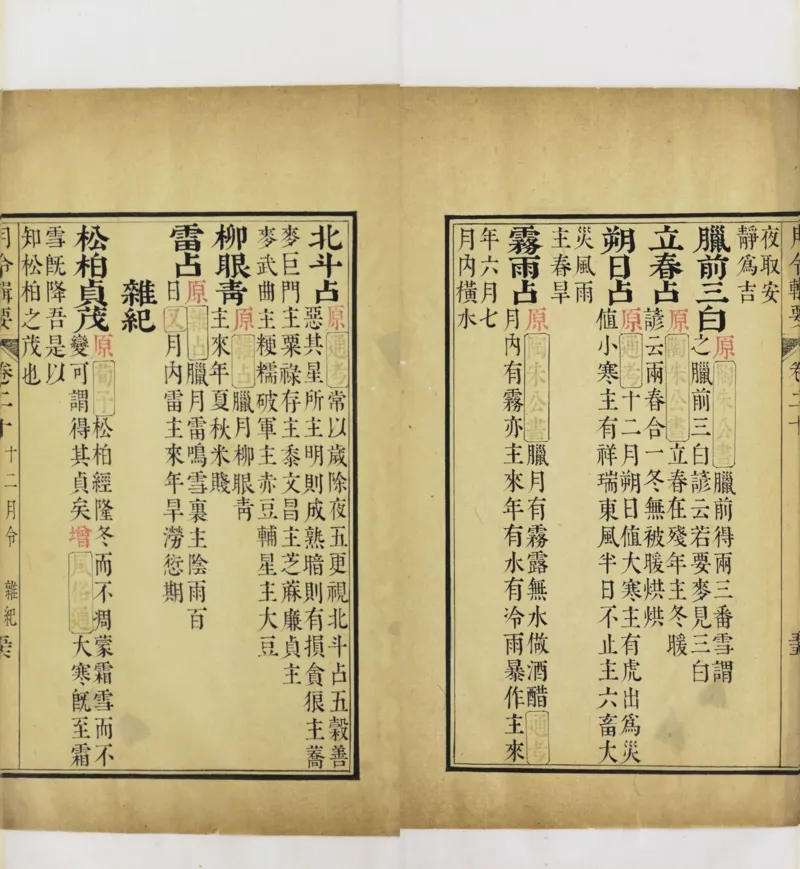 夜取安
靜爲吉
臘前三白 原 陶朱公書 臘前得兩三番雪謂
之臘前三白諺云若要麥見三白
立春占 原 陶朱公書 立春在殘年主冬暖
諺云兩春合一冬無被暖烘烘
朔日占 原 通考 十二月朔日值大寒主有虎出爲災
值小寒主有祥瑞東風半日不止主六畜大
災風雨
主春旱
霧雨占 原 陶朱公書 臘月有霧露無水做酒醋 通考
月內有霧亦主來年有水有冷雨暴作主來
年六月七
月內橫水
北斗占 原 通考 常以歲除夜五更視北斗占五穀善
惡其星所主明則成熟暗則有損貪狼主蕎
麥巨門主粟祿存主黍文昌主芝蔴廉貞主
麥武曲主粳糯破軍主赤豆輔星主大豆
柳眼青 原 占 臘月柳眼青
主來年夏秋米賤
雷占 原 占 臘月雷鳴雪裏主陰雨百
日 又 月內雷主來年旱澇愆期
雜紀
松柏貞茂 原 荀子 松柏經隆冬而不凋蒙霜雪而不
變可謂得其貞矣 增 風俗通 大寒旣至霜
雪旣降吾是以
知松柏之茂也
月令輯要 卷二十 十二月令 雜紀